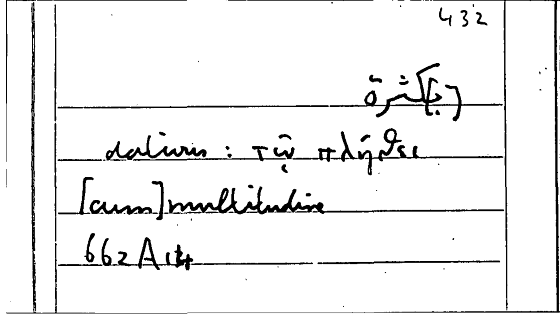 432
[ب]كثرة
dativus : τῷ πλήθει
[cum] multitudine
662 A 14